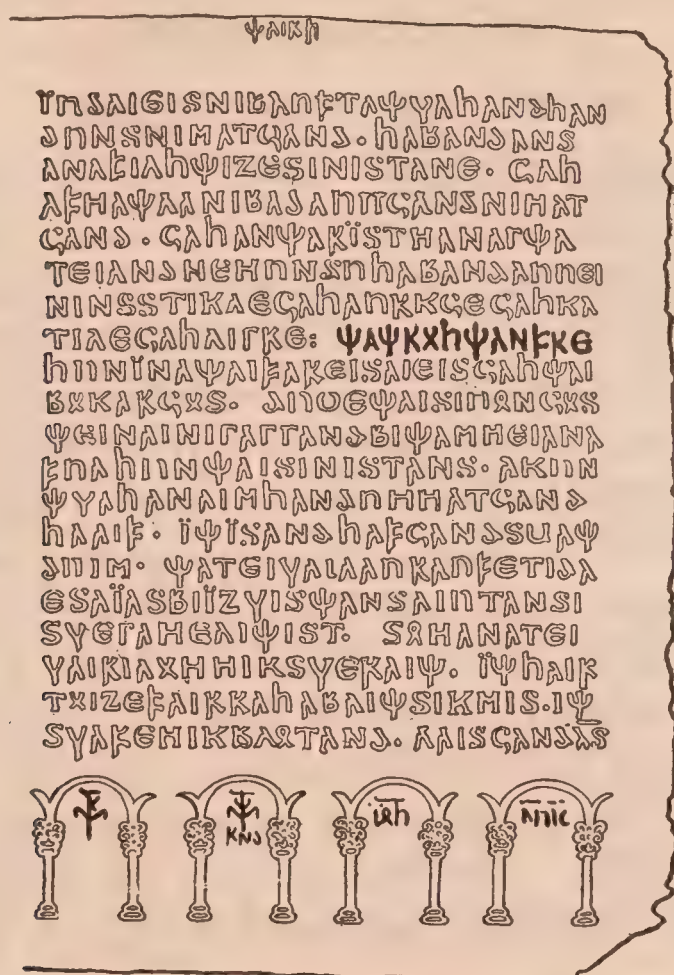 𐌸𐌰𐌹𐍂𐌷
𐌹̈𐌿𐌳𐌰𐌹𐌴𐌹𐍃𐌽𐌹𐌱𐌰𐌿𐍆𐍄𐌰𐌸𐍅𐌰𐌷𐌰𐌽𐌳𐌷𐌰𐌽
𐌳𐌿𐌽𐍃𐌽𐌹𐌼𐌰𐍄𐌾𐌰𐌽𐌳·𐌷𐌰𐌱𐌰𐌽𐌳𐌰𐌽𐍃
𐌰𐌽𐌰𐍆𐌹𐌻𐌷𐌸𐌹𐌶𐌴𐍃𐌹𐌽𐌹𐍃𐍄𐌰𐌽𐌴·𐌾𐌰𐌷
𐌰𐍆𐌼𐌰𐌸𐌻𐌰𐌽𐌹𐌱𐌰𐌳𐌰𐌿𐍀𐌾𐌰𐌽𐌳𐌽𐌹𐌼𐌰𐍄
𐌾𐌰𐌽𐌳·𐌾𐌰𐌷𐌰𐌽𐌸𐌰𐍂𐌹̈𐍃𐍄𐌼𐌰𐌽𐌰𐌲𐌸𐌰
𐍄𐌴𐌹𐌰𐌽𐌳𐌽𐌴𐌼𐌿𐌽𐌳𐌿𐌷𐌰𐌱𐌰𐌽𐌳𐌰𐌿𐍀𐌴𐌹
𐌽𐌹𐌽𐍃𐍃𐍄𐌹𐌺𐌻𐌴𐌾𐌰𐌷𐌰𐌿𐍂𐌺𐌾𐌴𐌾𐌰𐌷𐌺𐌰
𐍄𐌹𐌻𐌴𐌾𐌰𐌷𐌻𐌹𐌲𐍂𐌴: 𐌸𐌰𐌸𐍂𐍉𐌷𐌸𐌰𐌽𐍆𐍂𐌴
𐌷𐌿𐌽𐌹̈𐌽𐌰𐌸𐌰𐌹𐍆𐌰𐍂𐌴𐌹𐍃𐌰𐌹𐌴𐌹𐍃𐌾𐌰𐌷𐌸𐌰𐌹
𐌱𐍉𐌺𐌰𐍂𐌾𐍉𐍃· 𐌳𐌿𐍈𐌴𐌸𐌰𐌹𐍃𐌹𐍀𐍉𐌽𐌾𐍉𐍃
𐌸𐌴𐌹𐌽𐌰𐌹𐌽𐌹𐌲𐌰𐌲𐌲𐌰𐌽𐌳𐌱𐌹𐌸𐌰𐌼𐌼𐌴𐌹𐌰𐌽𐌰
𐍆𐌿𐌻𐌷𐌿𐌽𐌸𐌰𐌹𐍃𐌹𐌽𐌹𐍃𐍄𐌰𐌽𐍃·𐌰𐌺𐌿𐌽
𐌸𐍅𐌰𐌷𐌰𐌽𐌰𐌹𐌼𐌷𐌰𐌽𐌳𐌿𐌼𐌼𐌰𐍄𐌾𐌰𐌽𐌳
𐌷𐌻𐌰𐌹𐍆·𐌹̈𐌸𐌹̈𐍃𐌰𐌽𐌳𐌷𐌰𐍆𐌾𐌰𐌽𐌳𐍃𐌵𐌰𐌸
𐌳𐌿𐌹𐌼·𐌸𐌰𐍄𐌴𐌹𐍅𐌰𐌹𐌻𐌰𐍀𐍂𐌰𐌿𐍆𐌴𐍄𐌹𐌳𐌰
𐌴𐍃𐌰𐌹̈𐌰𐍃𐌱𐌹𐌹̈𐌶𐍅𐌹𐍃𐌸𐌰𐌽𐍃𐌻𐌹𐌿𐍄𐌰𐌽𐍃
𐍃𐍅𐌴𐌲𐌰𐌼𐌴𐌻𐌹𐌸𐌹𐍃𐍄· 𐍃𐍉𐌼𐌰𐌽𐌰𐌲𐌴𐌹
𐍅𐌰𐌹𐍂𐌹𐌻𐍉𐌼𐌼𐌹𐌺𐍃𐍅𐌴𐍂𐌰𐌹𐌸·𐌹̈𐌸𐌷𐌰𐌹𐍂
𐍄𐍉𐌹𐌶𐌴𐍆𐌰𐌹𐍂𐍂𐌰𐌷𐌰𐌱𐌰𐌹𐌸𐍃𐌹𐌺𐌼𐌹𐍃·𐌹𐌸
𐍃𐍅𐌰𐍂𐌴𐌼𐌹𐌺𐌱𐌻𐍉𐍄𐌰𐌽𐌳·𐌻𐌰𐌹𐍃𐌾𐌰𐌽𐌳𐌰𐍃
𐌹𐍉𐌷